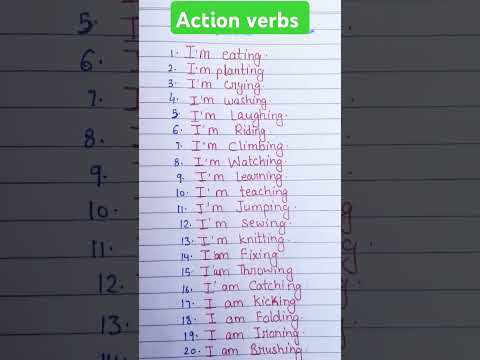 Action verbs
1. I'm eating.
2. I'm planting
3. I'm crying.
4. I'm washing.
5. I'm Laughing.
6. I'm Riding.
7. I'm Climbing.
8. I'm Watching.
9. I'm learning.
10. I'm teaching
11. I'm Jumping.
12. I'm sewing.
13. I'm knitting.
14. I am Fixing.
15. I'am Throwing
16. I'am Catching
17. I am Kicking
18. I am Folding.
19. I am Ironing.
20. I am Brushing